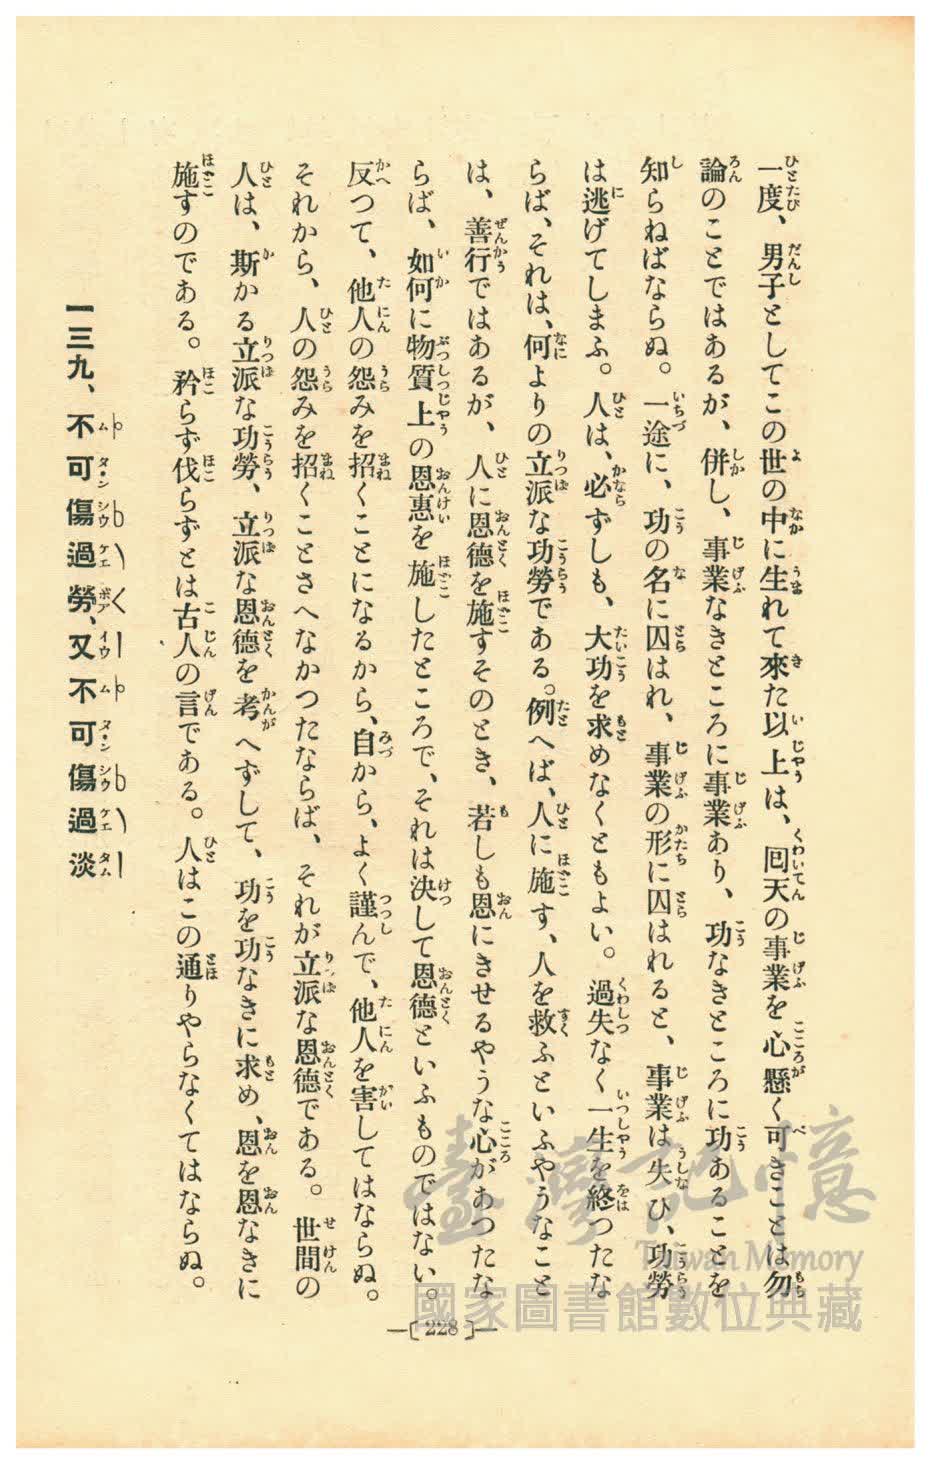 一度、男子としてこの世の中に生れて來た以上は、囘天の事業を心懸く可きことは勿
論のことではあるが、併し、事業なきところに事業あり、功なきところに功あることを
知らねばならぬ。一途に、功の名に囚はれ、事業の形に囚はれると、事業は失ひ、功勞
は逃げてしまふ。人は、必ずしも、大功を求めなくともよい。過失なく一生を終つたな
らば、それは、何よりの立派な功勞である。例へば、人に施す、人を救ふといふやうなこと
は、善行ではあるが、人に恩德を施すそのとき、若しも恩にきせるやうな心があつたな
らば、如何に物質上の恩惠を施したところで、それは決して恩德といふものではない。
反つて、他人の怨みを招くことになるから、自から、よく謹んで、他人を害してはならぬ。
それから、人の怨みを招くことさへなかつたならば、それが立派な恩德である。世間の
人は、斯かる立派な功勞、立派な恩德を考へずして、功を功なきに求め、恩を恩なきに
施すのである。矜らず伐らずとは古人の言である。人はこの通りやらなくてはならぬ。
一三九、不可傷過勞、又不可傷過淡
—〔228〕—
臺灣記憶
Taiwan Memory
國家圖書館數位典藏